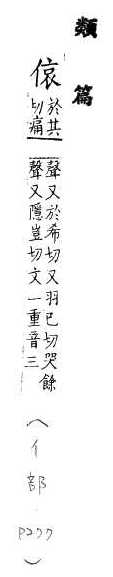 類篇
偯
於其
切痛
聲又於希切又羽已切哭餘
聲又隱豈切文一重音三
(亻部 P277)